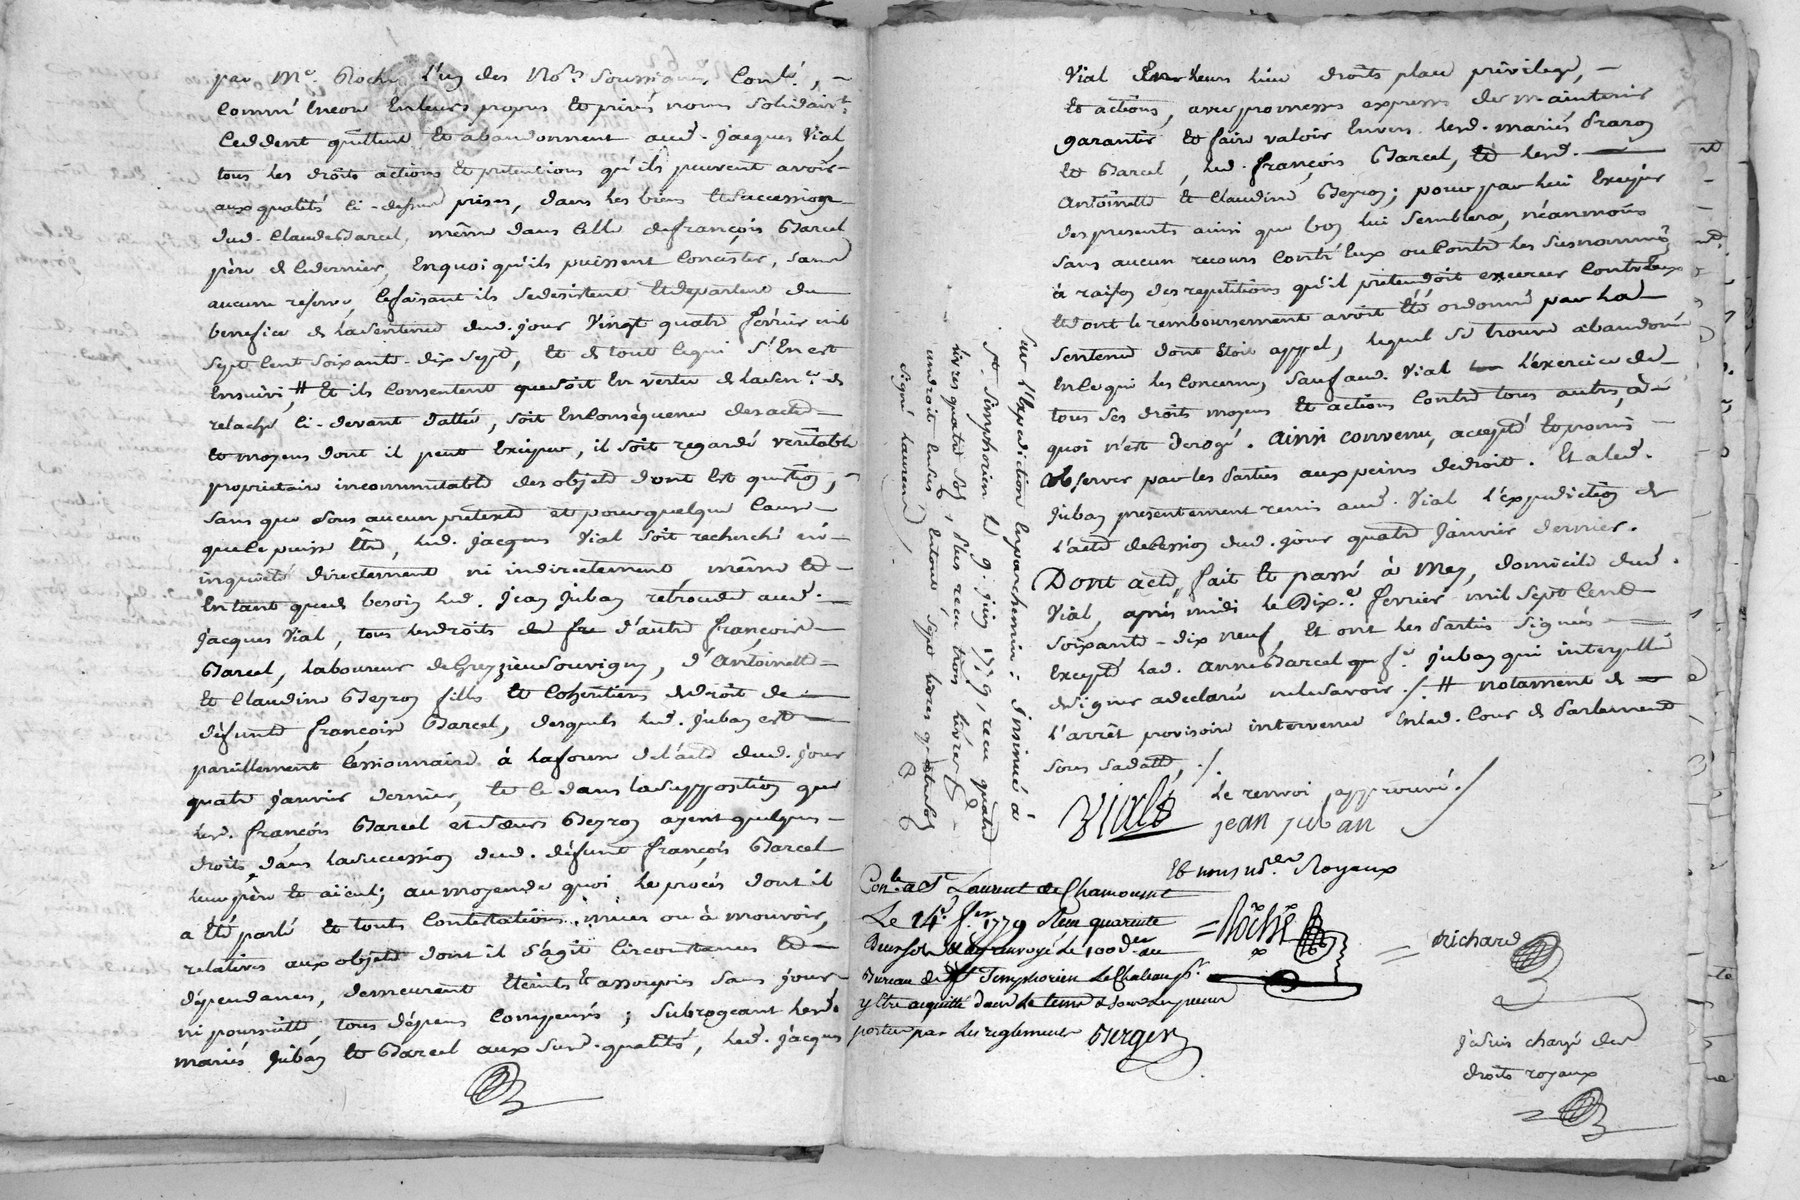 par Me. Roche l'un des No.res soussignés, Conlé,
comm'encore en leurs propres et privés noms solidairt.
ceddent quittent et abandonnent aud. jacques Vial,
tous les droits actions et pretentions qu'ils peuvent avoir
aux qualités ci-dessus prises, dans les biens et succession
dud. Claude Barcel, même dans celle de françois Barcel
père de ce dernier, en quoi qu'ils puissent concister, sans
aucune reserve, ce faisant ils se desistent et departent du
benefice de la sentence dud. jour Vingt quatre fevrier mil
sept cent soixante-dix sept, et de tout ce qui s'en est
ensuivi, # et ils consentent que soit en vertu de la sen.ce de
relaché ci-devant dattée, soit en conséquence des actes
et moyens dont il peut exciper, il soit regardé veritable
proprietaire incommutable des objets dont est question,
sans que sous aucun pretexte et pour quelque cause
que ce puisse être, led. jacques Vial soit recherché ni
inquieté directement ni indirectement, même et
en tant que de besoin led. jean juban retrocede aud.
jacques Vial, tous les droits de fre d'autre françois
Barcel, laboureur de Grezieu Souvigny, d'Antoinette
et Claudine Beyron filles et cohéritiers de droit de
défunte françoise Barcel, desquels led. juban est
pareillement cessionnaire à la forme de l'acte dud. jour
quatre janvier dernier, et ce dans la supposition que
lesd. françois Barcel et sœurs Beyron ayent quelques
droits dans la succession dud. défunt françois Barcel
leur père et aïeul; au moyen de quoi le procés dont il
a été parlé et touts contestations, mues ou à mouvoir,
relatives aux objets dont il s'agit circonstances et
dépendances, demeurent éteints et assoupis sans jour
ni poursuitte, tous dépens compensés; subrogeant lesd.
mariés juban et Barcel aux susd. qualités, led. jacques
Vial en leurs lieu droits place privilege,
et actions, avec promesses expresses de maintenir
garantir et faire valoir envers lesd. mariés
et Barcel, led. françois Barcel, et lesd.
Antoinette et Claudine Beyron; pour par lui exciper
des presents ainsi que bon lui semblera, néanmoins
sans aucun recours contr'eux ou contre les susnommés
à raison des repetitions qu'il pretendoit exercer contr'eux
et dont le remboursement avoit été ordonné par la
sentence dont étoit appel, lequel se trouve abandonné
en ce qui les concerne, sauf aud. Vial l'exercice de
tous ses droits moyens et actions contre tous autres, à
quoi n'est derogé. Ainsi convenu, accepté et promis
observer par les parties aux peines de droit. Et a led.
juban presentement remis aud. Vial l'expediction de
l'acte de cession dud. jour quatre janvier dernier.
Dont acte, fait et passé à Mey, domicile dud.
Vial, après midi le Dix.e fevrier mil sept cent
soixante-dix neuf, et ont les parties signés
excepté lad. Anne Barcel que fe. juban qui interpellée
de signer a declaré ne le savoir ./. # notament de
l'arrêt provisoire intervenu en lad. Cour de Parlement
sous sa datte, ./.
Le renvoi approuvé ./
Vial
jean juban
Et nous nd. Royaux
Roche
richard
Sur l'expediction en parchemin: insinué à
St. Simphorien le 9. juin 1779, recu quatre
livres quatre sols, Plus recu trois livres
un droit
signé Laurend ./.
Conlé à St. Laurent de Chamousset
Le 14e. fer. 1779 Reçu quarante
Deux sols renvoyé le 100.e Der au
Bureau de St. Simphorien Le Chateau pr.
y être acquitté dans le tems & sous les peines
portées par les reglements Berger
j'ai suis chargé des
droits royaux